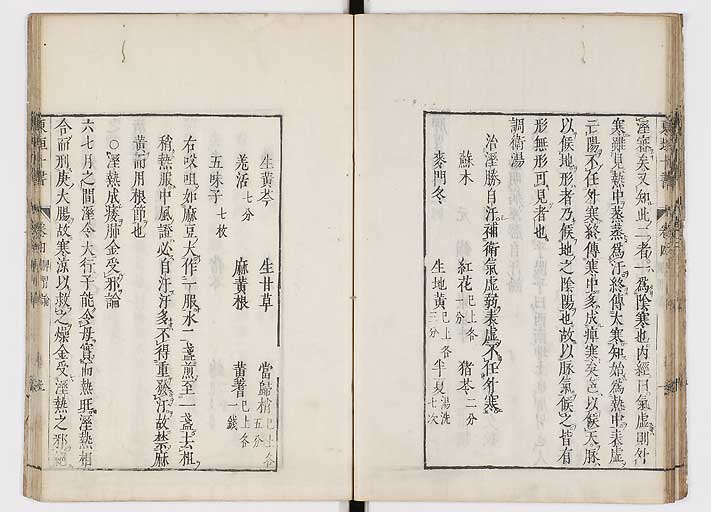 東垣十書
溼痹矣又知此二者一爲陰寒也内經曰氣虛則外
寒雖見熱中蒸蒸爲汗終傳大寒知始爲熱中表虛
亡陽不任外寒終傳寒中多成痺寒矣色以候天脉
以候地形者乃候地之陰陽也故以脉氣候之皆有
形無形可見者也
調衛湯
治溼勝自汗補衛氣虛弱表虛不任外寒
蘇木 紅花已上各一分 猪苓二分
麥門冬 生地黃已上各三分 半夏湯洗七次
生黃芩 生甘草 當歸梢已上各五分
羌活七分 麻黃根 黃耆已上各一錢
五味子七枚
右㕮咀如麻豆大作一服水二盞煎至一盞去柤
稍熱服中風證必自汗汗多不得重發汗故禁麻
黃而用根節也
○溼熱成痿肺金受邪論
六七月之間溼令大行子能令母實而熱旺溼熱相
合而刑庚大腸故寒涼以救之燥金受溼熱之邪絕
東垣十書